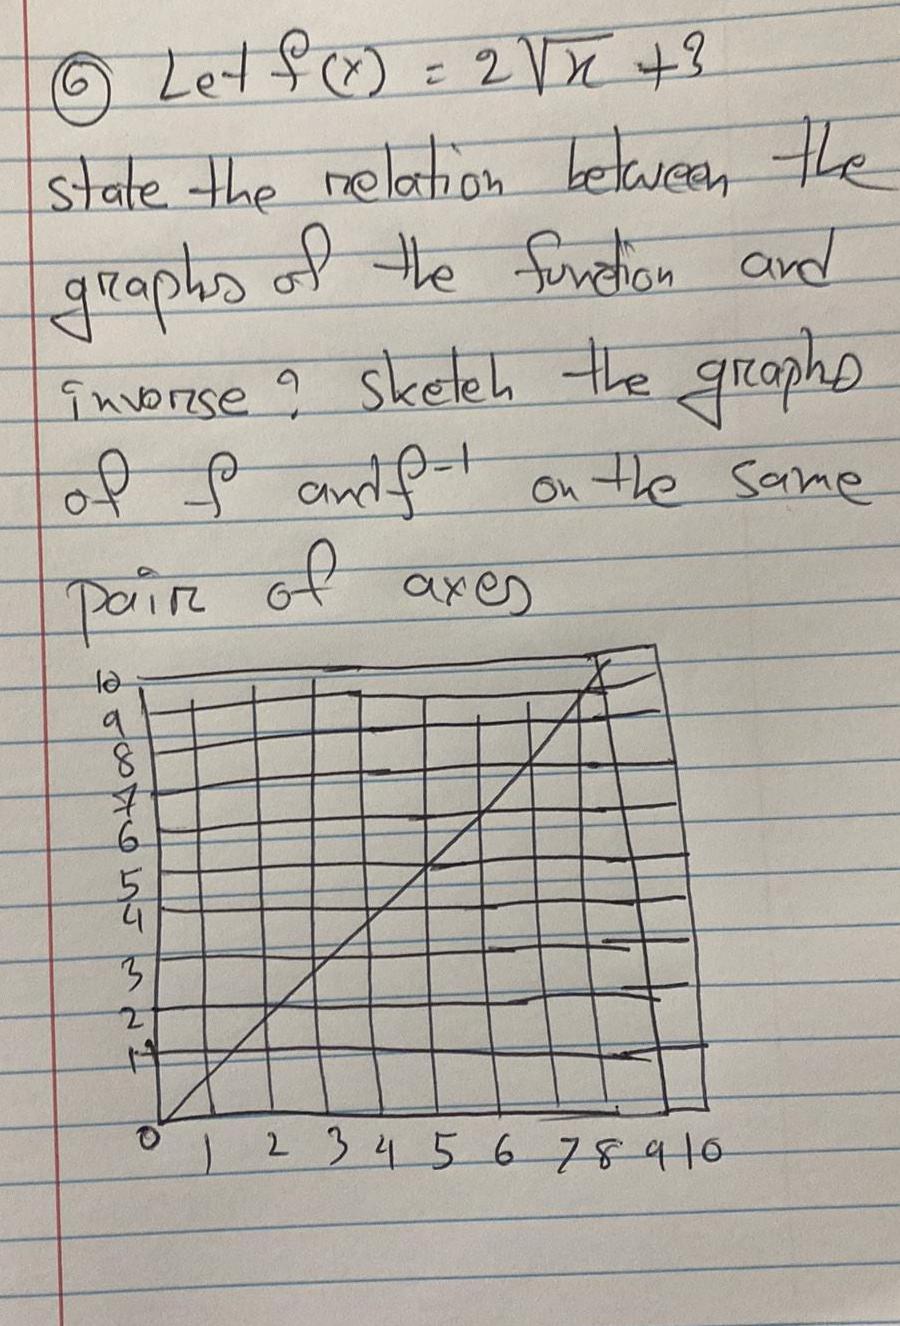 ⑥ Let f(x) = 2√x + 3
state the relation between the
graphs of the function and
inverse? Sketch the graphs
of f and f⁻¹ on the same
pair of axes
10
9
8
7
6
5
4
3
2
1
0 1 2 3 4 5 6 7 8 9 10